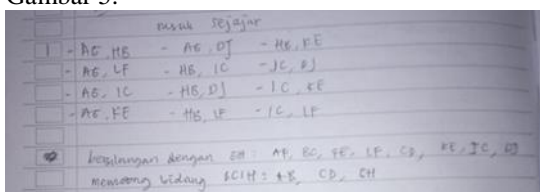 Gambar 5.
rusuk sejajar
1 - AG, HB - AG, DJ - HB, FE
- AG, LF - HB, IC - JC, DJ
- AG, IC - HB, DJ - IC, FE
- AG, KE - HB, LF - IC, LF
bersilangan dengan GH : AF, BC, FE, LF, CD, KE, IC, DJ
memotong bidang BCIH : AB, CD, GH